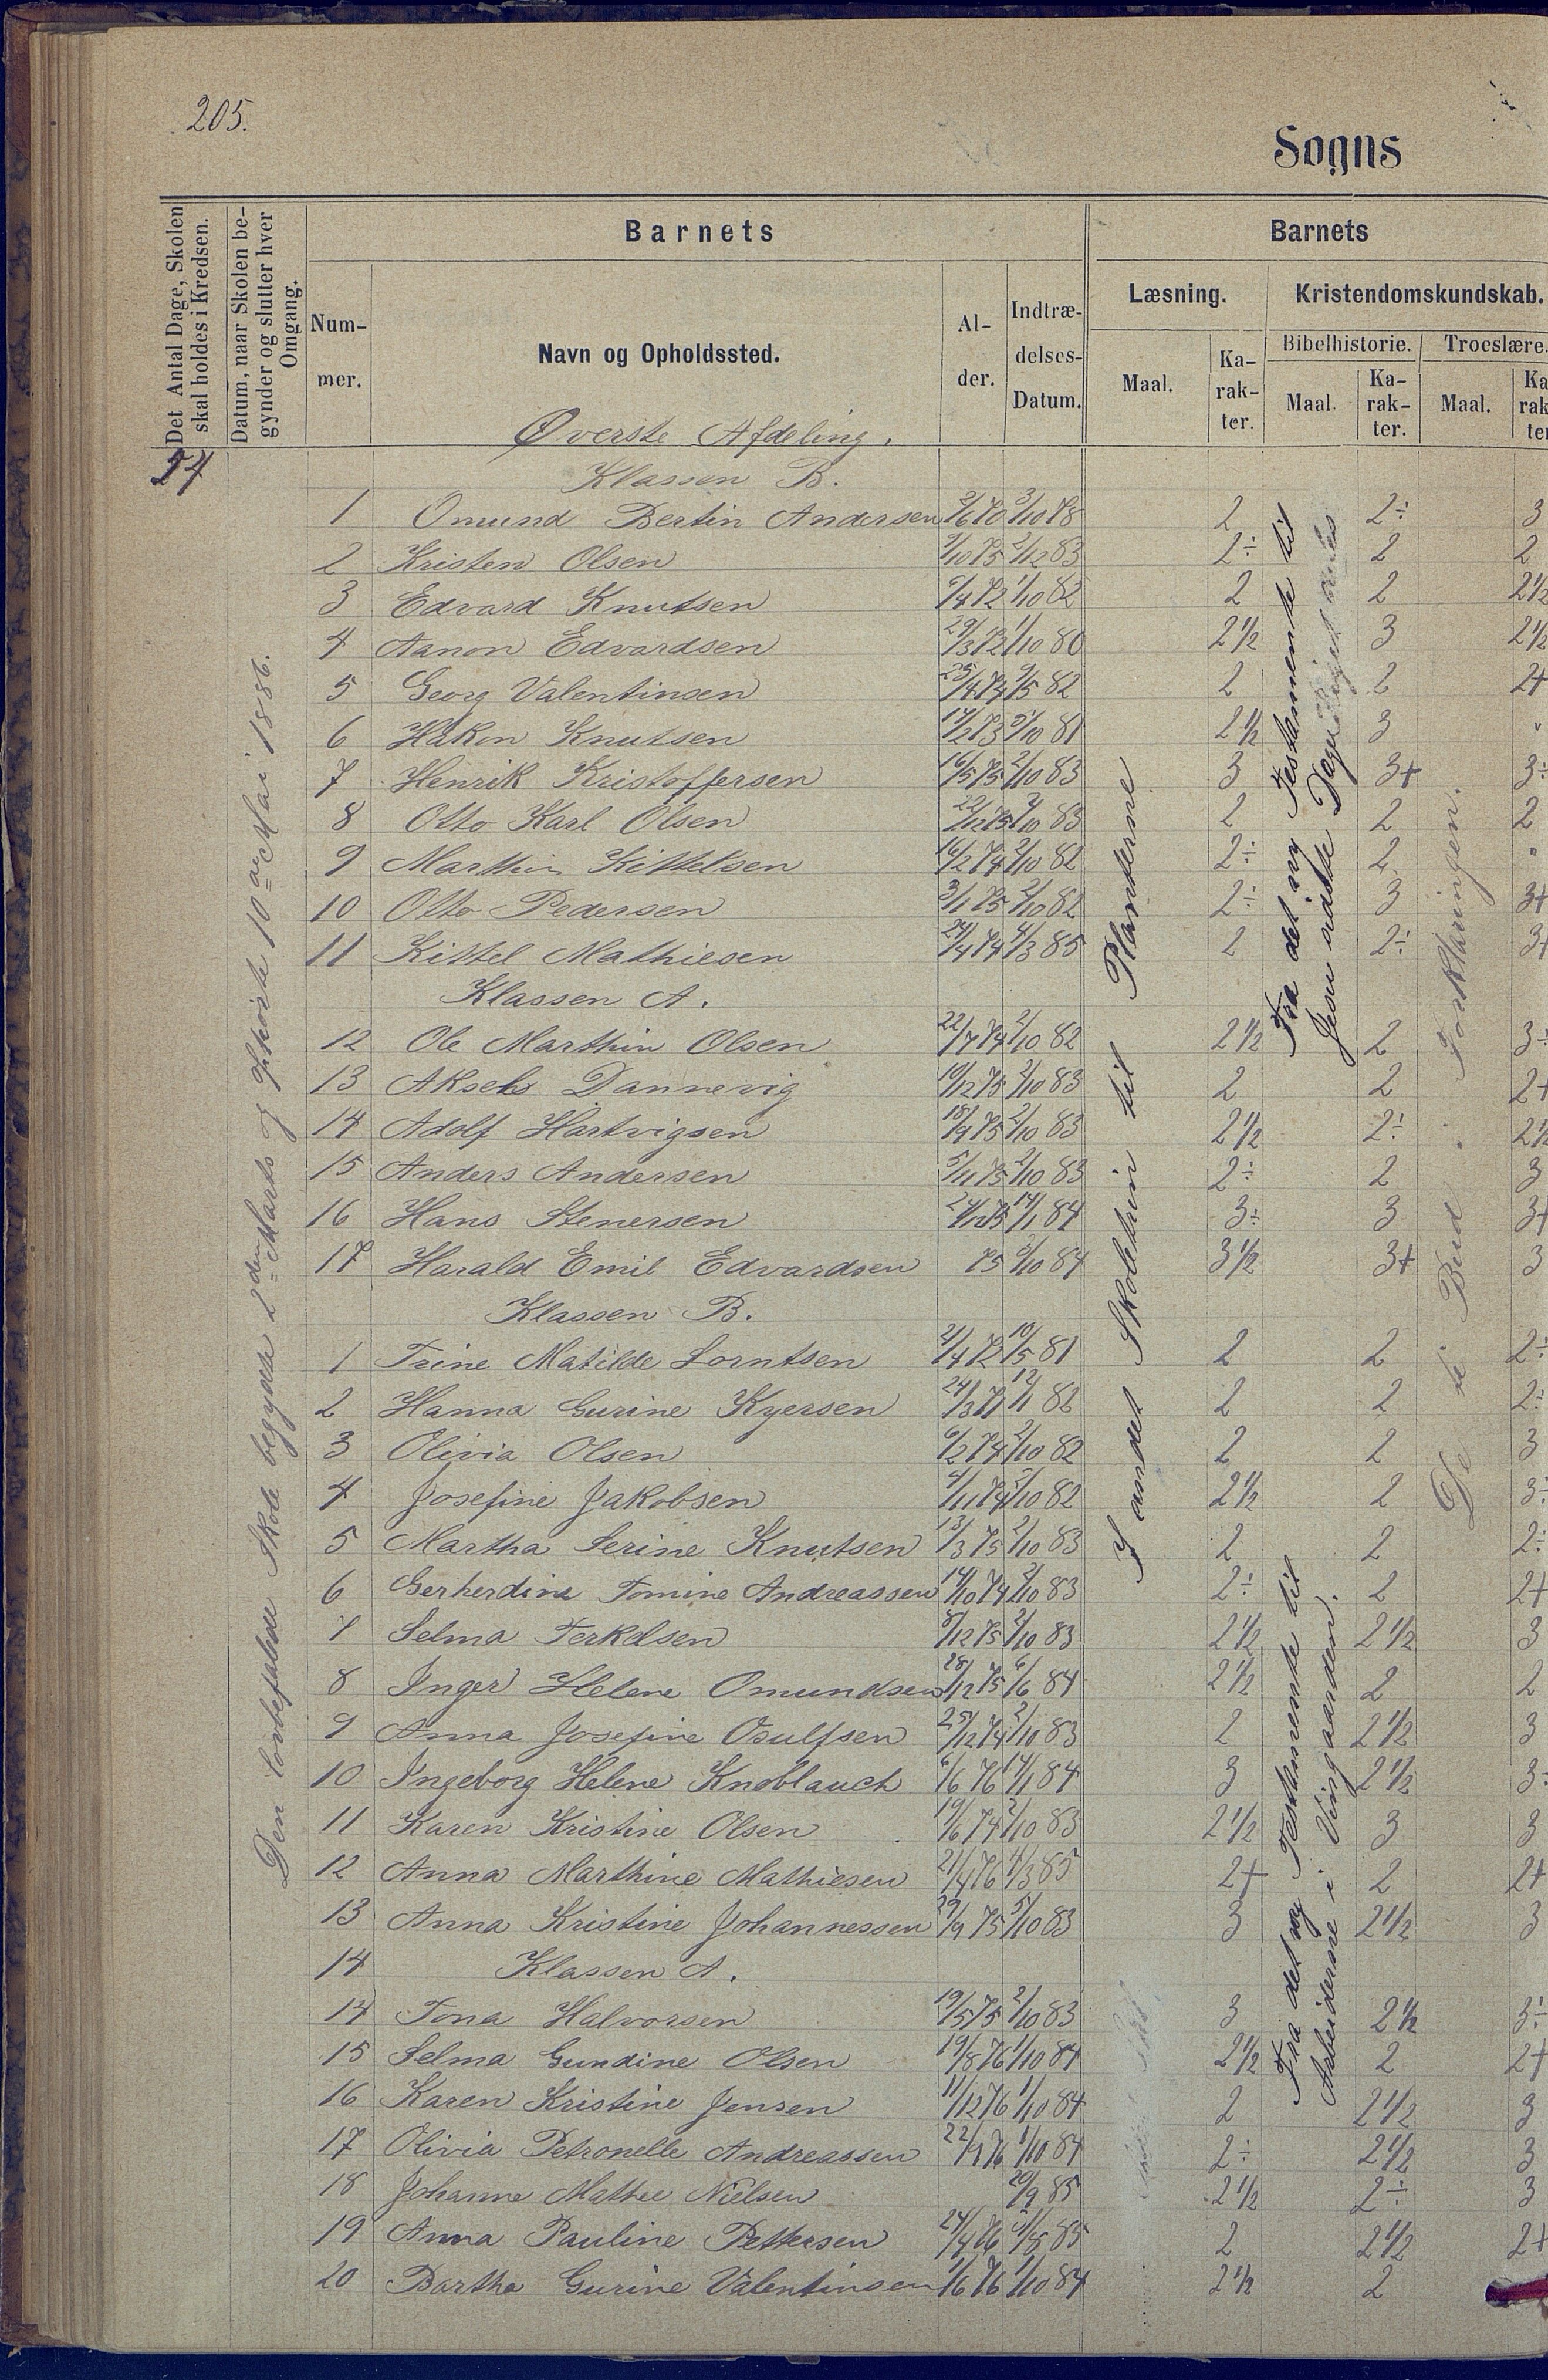 205.
Sogns
Det Antal Dage, Skolen skal holdes i Kredsen.
Datum, naar Skolen begynder og slutter hver Omgang.
Barnets
Barnets
Num-mer.
Navn og Opholdssted.
Al-der.
Indtræ-delses-Datum.
Læsning.
Kristendomskundskab.
Bibelhistorie.
Troeslære.
Maal.
Ka-rak-ter.
Maal.
Ka-rak-ter.
Maal.
Ka rak te
Øverste Afdeling.
54
Klassen B.
1 Omund Bertin Andersen 3/10 78 2 2÷ 3
2 Kristen Olsen 9/10 75 2/12 83 2÷ 2 2
3 Edvard Knutsen 72 1/10 82 2 2 2 1/2
4 Aanon Edvardsen 29/3 72 1/10 80 2 1/2 3 2 1/2
5 Georg Valentinsen 25/4 74 9/5 82 2 2 2+
6 Håkon Knutsen 14/2 73 5/10 81 2 1/2 3 "
7 Henrik Kristoffersen 16/5 75 2/10 83 3 3+ 3÷
8 Otto Karl Olsen 22/12 75 2/10 83 2 2 2
9 Marthin Kittelsen 16/2 74 2/10 82 2÷ 2 "
10 Otto Pedersen 3/1 75 2/10 82 2÷ 3 3+
11 Kittel Mathiesen 24/4 74 4/3 85 2 2÷ 3+
Klassen A.
12 Ole Marthin Olsen 22/7 74 2/10 82 2 1/2 2 3÷
13 Aksel Dannevig 10/12 75 2/10 83 2 2 2+
14 Adolf Hartvigsen 18/9 75 2/10 83 2 1/2 2÷ 2 1/2
15 Anders Andersen 5/11 75 2/10 83 2÷ 2 3
16 Hans Stenersen 14/1 84 3÷ 3 3+
17 Harald Emil Edvardsen 75 84 3 1/2 3+ 3
Klassen B.
1 Trine Matilde Lorntsen 2/4 72 10/5 81 2 2 2÷
2 Hanna Gurine Kyersen 24/3 71 12/1 82 2 2 2÷
3 Olivia Olsen 6/2 74 2/10 82 2 2 3
4 Josefine Jakobsen 4/11 74 2/10 82 2 1/2 2 3÷
5 Martha Serine Knutsen 13/3 75 2/10 83 2 2 2÷
6 Gerherdine Tomine Andreassen 14/10 74 2/10 83 2÷ 2 2+
7 Selma Terkelsen 8/12 75 2/10 83 2 1/2 2 1/2 3
8 Inger Helene Omundsen 28/12 75 6/6 84 2 1/2 2 2
9 Anna Josefine Osulfsen 25/12 74 2/10 83 2 2 1/2 3
10 Ingeborg Helene Knoblauch 6/6 76 14/1 84 3 2 1/2 3÷
11 Karen Kristine Olsen 19/6 74 2/10 83 2 1/2 3 3
12 Anna Marthine Mathiesen 21/4 76 4/3 85 2+ 2 2+
13 Anna Kristine Johannessen 29/9 75 5/10 83 3 2 1/2 3
14 Klassen A.
14 Tona Halvorsen 19/5 75 2/10 83 3 2 1/2 3÷
15 Selma Gundine Olsen 19/8 76 1/10 84 2 1/2 2 2+
16 Karen Kristine Jensen 11/12 76 1/10 84 2 2 1/2 3
17 Olivia Petronelle Andreassen 22/9 76 1/10 84 2÷ 2 1/2 3
18 Johanne Mathee Nielsen 20/9 85 2 1/2 2÷ 3
19 Anna Pauline Pettersen 24/4 76 85 2 2 1/2 2+
20 Bartha Gurine Valentinsen 1/6 76 1/10 84 2 1/2 2
Den lovbefalede Skole begyndte 2den Marts og ophørte 10de Mai 1886.
I andet Skoletrin til Planterne
Fra det ny Testamente til
Jesu sidste
Fra det ny Testamente til
Arbeiderne i Vingaarden.
De ti Bud i Forklaringen.